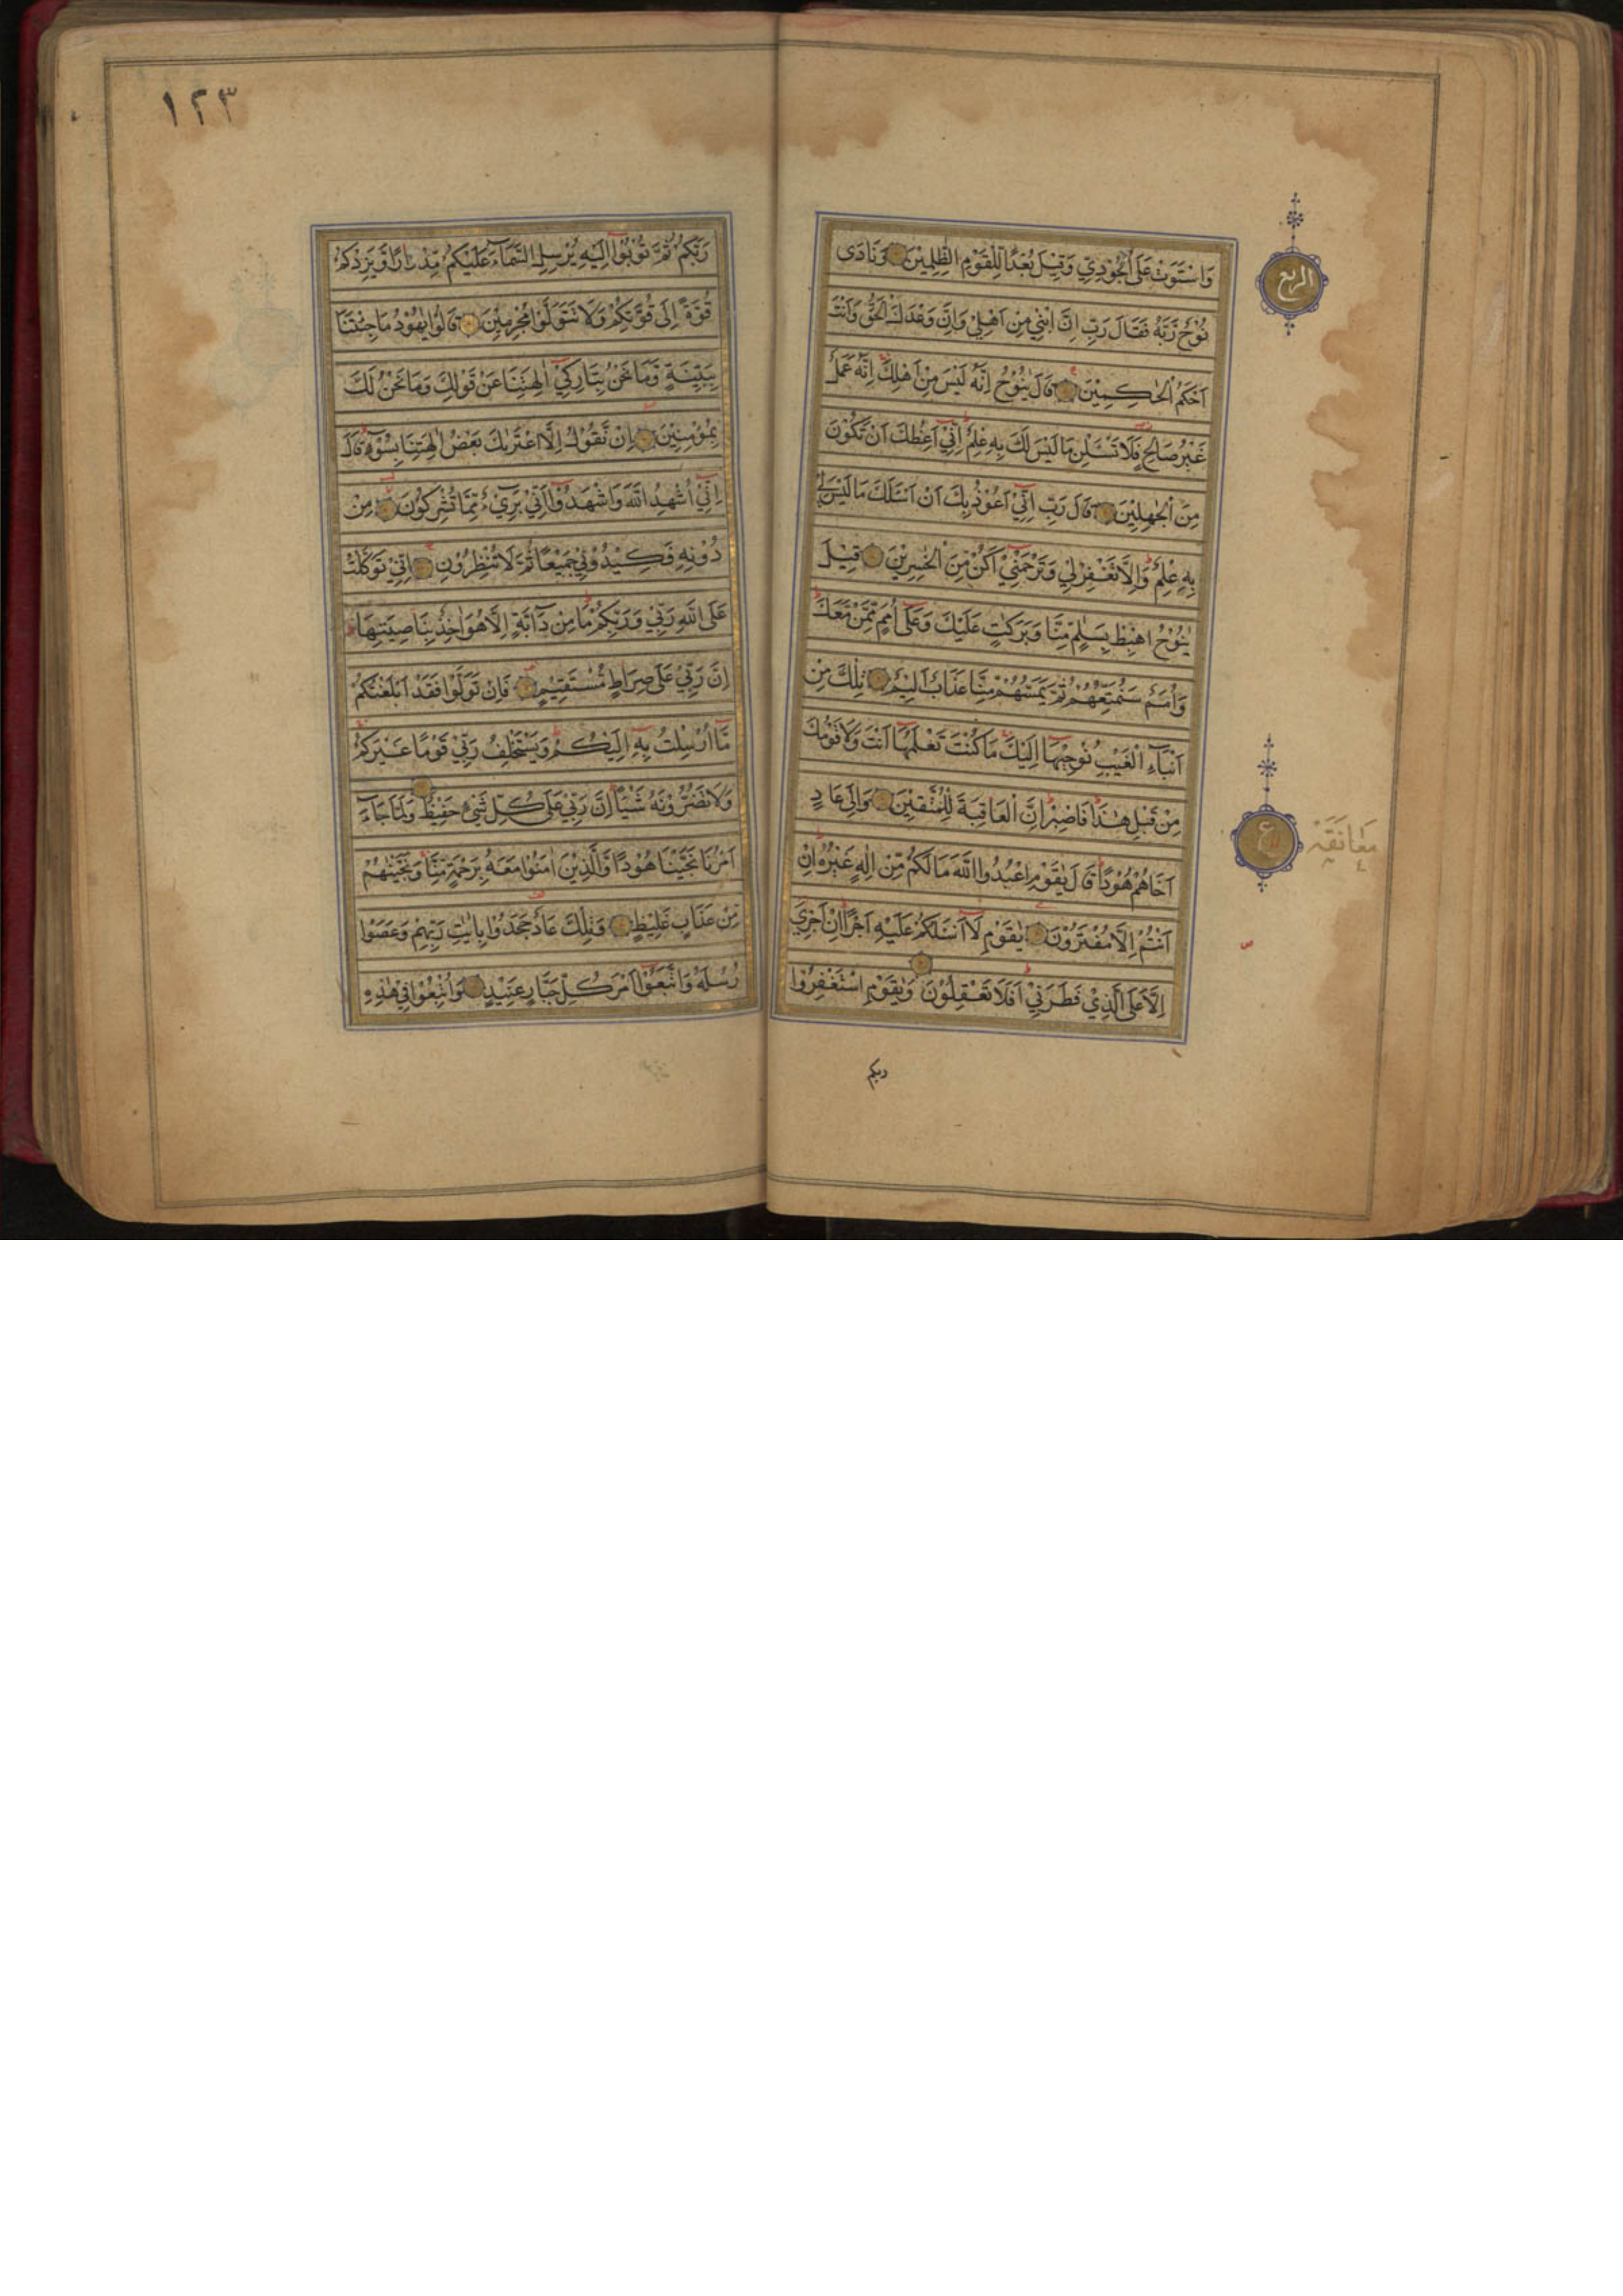 وَاسْتَوَتْ عَلَى الْجُوْدِيِّ وَقِيْلَ بُعْدًا لِّلْقَوْمِ الظّٰلِمِيْنَ وَنَادٰى
نُوْحٌ رَّبَّهٗ فَقَالَ رَبِّ اِنَّ ابْنِيْ مِنْ اَهْلِيْ وَاِنَّ وَعْدَكَ الْحَقُّ وَاَنْتَ
اَحْكَمُ الْحٰكِمِيْنَ قَالَ يٰنُوْحُ اِنَّهٗ لَيْسَ مِنْ اَهْلِكَ اِنَّهٗ عَمَلٌ
غَيْرُ صَالِحٍ فَلَا تَسْـَٔلْنِ مَا لَيْسَ لَكَ بِهٖ عِلْمٌ اِنِّيْ اَعِظُكَ اَنْ تَكُوْنَ
مِنَ الْجٰهِلِيْنَ قَالَ رَبِّ اِنِّيْ اَعُوْذُ بِكَ اَنْ اَسْـَٔلَكَ مَا لَيْسَ لِيْ
بِهٖ عِلْمٌ وَاِلَّا تَغْفِرْلِيْ وَتَرْحَمْنِيْ اَكُنْ مِّنَ الْخٰسِرِيْنَ قِيْلَ
يٰنُوْحُ اهْبِطْ بِسَلٰمٍ مِّنَّا وَبَرَكٰتٍ عَلَيْكَ وَعَلٰى اُمَمٍ مِّمَّنْ مَّعَكَ
وَاُمَمٌ سَنُمَتِّعُهُمْ ثُمَّ يَمَسُّهُمْ مِّنَّا عَذَابٌ اَلِيْمٌ تِلْكَ مِنْ
اَنْبَآءِ الْغَيْبِ نُوْحِيْهَا اِلَيْكَ مَا كُنْتَ تَعْلَمُهَا اَنْتَ وَلَا قَوْمُكَ
مِنْ قَبْلِ هٰذَا فَاصْبِرْ اِنَّ الْعَاقِبَةَ لِلْمُتَّقِيْنَ وَاِلٰى عَادٍ
اَخَاهُمْ هُوْدًا قَالَ يٰقَوْمِ اعْبُدُوا اللّٰهَ مَا لَكُمْ مِّنْ اِلٰهٍ غَيْرُهٗ اِنْ
اَنْتُمْ اِلَّا مُفْتَرُوْنَ يٰقَوْمِ لَا اَسْـَٔلُكُمْ عَلَيْهِ اَجْرًا اِنْ اَجْرِيَ
اِلَّا عَلَى الَّذِيْ فَطَرَنِيْ اَفَلَا تَعْقِلُوْنَ وَيٰقَوْمِ اسْتَغْفِرُوْا
ربكم
الربع
ع
مُعَانَقَهْ
١٢٣
رَبَّكُمْ ثُمَّ تُوْبُوْا اِلَيْهِ يُرْسِلِ السَّمَآءَ عَلَيْكُمْ مِّدْرَارًا وَّيَزِدْكُمْ
قُوَّةً اِلٰى قُوَّتِكُمْ وَلَا تَتَوَلَّوْا مُجْرِمِيْنَ قَالُوْا يٰهُوْدُ مَا جِئْتَنَا
بِبَيِّنَةٍ وَّمَا نَحْنُ بِتَارِكِيْ اٰلِهَتِنَا عَنْ قَوْلِكَ وَمَا نَحْنُ لَكَ
بِمُؤْمِنِيْنَ اِنْ نَّقُوْلُ اِلَّا اعْتَرٰىكَ بَعْضُ اٰلِهَتِنَا بِسُوْٓءٍ قَالَ
اِنِّيْ اُشْهِدُ اللّٰهَ وَاشْهَدُوْا اَنِّيْ بَرِيْٓءٌ مِّمَّا تُشْرِكُوْنَ مِنْ
دُوْنِهٖ فَكِيْدُوْنِيْ جَمِيْعًا ثُمَّ لَا تُنْظِرُوْنِ اِنِّيْ تَوَكَّلْتُ
عَلَى اللّٰهِ رَبِّيْ وَرَبِّكُمْ مَا مِنْ دَآبَّةٍ اِلَّا هُوَ اٰخِذٌ بِنَاصِيَتِهَا
اِنَّ رَبِّيْ عَلٰى صِرَاطٍ مُّسْتَقِيْمٍ فَاِنْ تَوَلَّوْا فَقَدْ اَبْلَغْتُكُمْ
مَّا اُرْسِلْتُ بِهٖ اِلَيْكُمْ وَيَسْتَخْلِفُ رَبِّيْ قَوْمًا غَيْرَكُمْ
وَلَا تَضُرُّوْنَهٗ شَيْـًٔا اِنَّ رَبِّيْ عَلٰى كُلِّ شَيْءٍ حَفِيْظٌ وَلَمَّا جَآءَ
اَمْرُنَا نَجَّيْنَا هُوْدًا وَّالَّذِيْنَ اٰمَنُوْا مَعَهٗ بِرَحْمَةٍ مِّنَّا وَنَجَّيْنٰهُمْ
مِّنْ عَذَابٍ غَلِيْظٍ وَتِلْكَ عَادٌ جَحَدُوْا بِاٰيٰتِ رَبِّهِمْ وَعَصَوْا
رُسُلَهٗ وَاتَّبَعُوْا اَمْرَ كُلِّ جَبَّارٍ عَنِيْدٍ وَاُتْبِعُوْا فِيْ هٰذِهِ